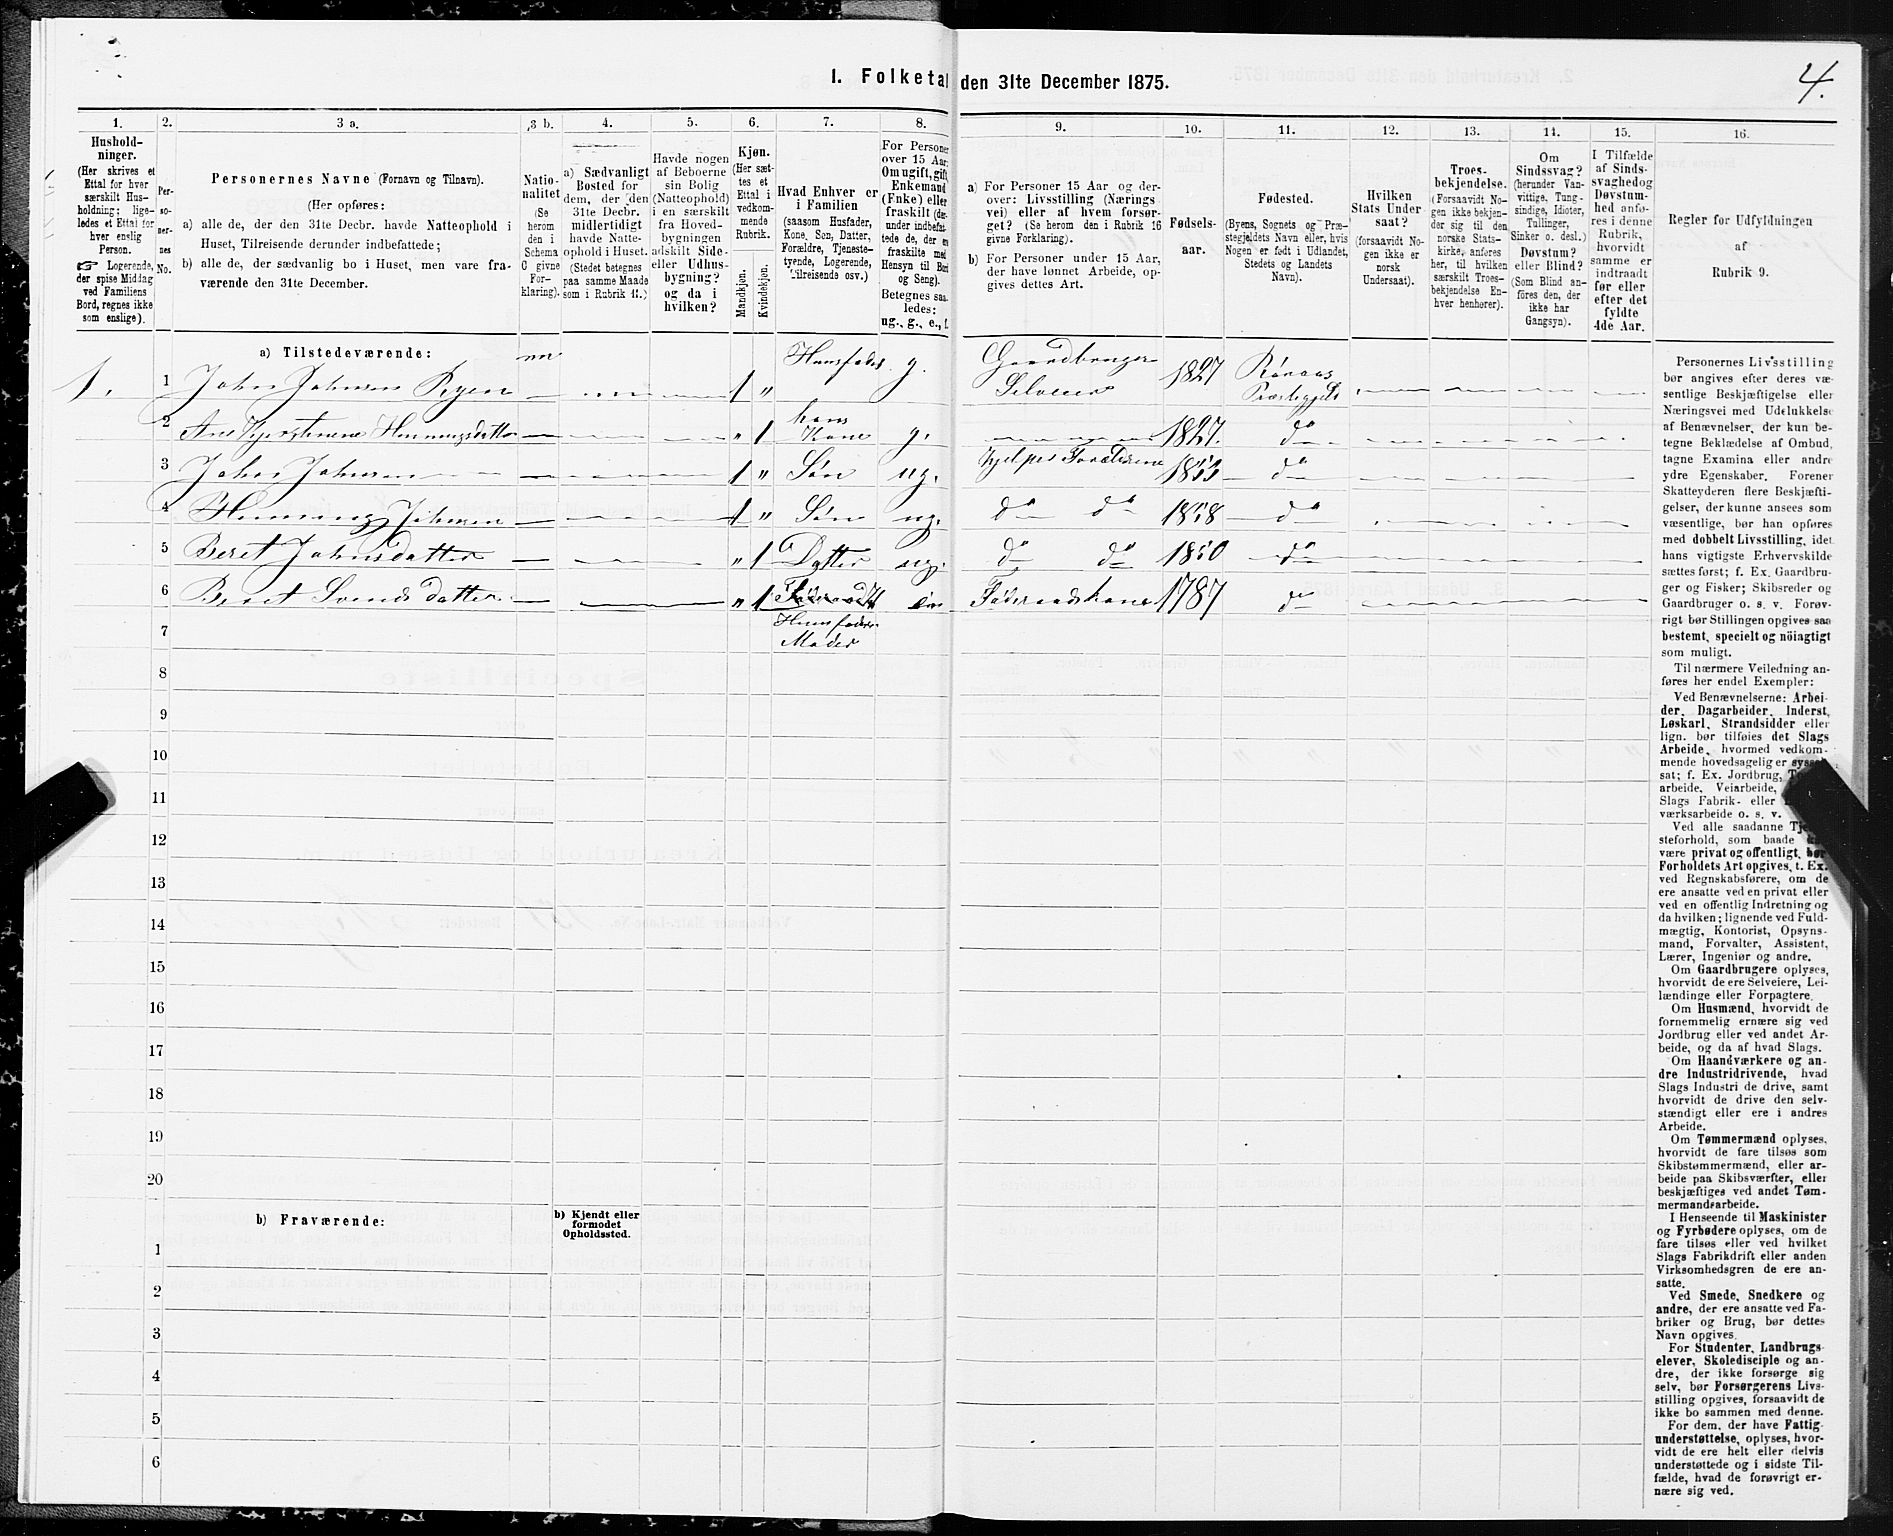 I. Folketal den 31te December 1875.
4.
1.
Hushold-
ninger.
(Her skrives et
Ettal for hver
særskilt Hus-
holdning; lige-
ledes et Ettal for
hver enslig
Person.
☞ Logerende,
der spise Middag
ved Familiens
Bord, regnes ikke
som enslige).
2.
Per-
so-
ner-
nes
No.
3 a.
Personernes Navne (Fornavn og Tilnavn).
(Her opføres:
a) alle de, der den 31te Decbr. havde Natteophold i
Huset, Tilreisende derunder indbefattede;
b) alle de, der sædvanlig bo i Huset, men vare fra-
værende den 31te December.
3 b.
Natio-
nalitet
(Se
herom
den i
Schema
C givne
For-
klaring).
4.
a) Sædvanligt
Bosted for
dem, der den
31te Decbr.
midlertidigt
havde Natte-
ophold i Huset.
(Stedet betegnes
paa samme Maade
som i Rubrik 11.)
5.
Havde nogen
af Beboerne
sin Bolig
(Natteophold)
i en særskilt
fra Hoved-
bygningen
adskilt Side-
eller Udhus-
bygning?
og da i
hvilken?
6.
Kjøn.
(Her sæt-
tes et
Ettal i
vedkom-
mende
Rubrik.
Mandkjøn.
Kvindekjøn.
7.
Hvad Enhver er
i Familien
(saasom Husfader,
Kone, Søn, Datter,
Forældre, Tjeneste-
tyende, Logerende,
Tilreisende osv.)
8.
For Personer
over 15 Aar:
Om ugift, gift,
Enkemand
(Enke) eller
fraskilt (der-
under indbefat-
tede de, der ere
fraskilte med
Hensyn til Bord
og Seng).
Betegnes saa-
ledes:
ug., g., e., f.
9.
a) For Personer 15 Aar og der-
over: Livsstilling (Nærings-
vei) eller af hvem forsør-
get? (Se herom den i Rubrik 16
givne Forklaring).
b) For Personer under 15 Aar,
der have lønnet Arbeide, op-
gives dettes Art.
10.
Fødsels-
aar.
11.
Fødested.
(Byens, Sognets og Præ-
stegjeldets Navn eller, hvis
Nogen er født i Udlandet,
Stedets og Landets
Navn).
12.
Hvilken
Stats Under-
saat?
(forsaavidt No-
gen ikke er
norsk
Undersaat).
13.
Troes-
bekjendelse.
(Forsaavidt No-
gen ikke bekjen-
der sig til den
norske Stats-
kirke, anføres
her, til hvilken
særskilt Troes-
bekjendelse En-
hver henhører).
14.
Om
Sindssvag?
(herunder Van-
vittige, Tung-
sindige, Idioter,
Tullinger,
Sinker o. desl.)
Døvstum?
eller Blind?
(Som Blind an-
føres den, der
ikke har
Gangsyn).
15.
I Tilfælde
af Sinds-
svaghed og
Døvstum-
hed anfø-
res i denne
Rubrik,
hvorvidt
samme er
indtraadt
før eller
efter det
fyldte
4de Aar.
16.
Regler for Udfyldningen
af
Rubrik 9.
a) Tilstedeværende:
1. 1 John Johnsen Ryen nn 1 " Huusfader g. Gaardbruger Selveier 1827 Røraas Præstegjeld
2 Ane Kjerstine Henningsdatter " 1 hans Kone g. 1827. do
3 John Johnsen 1 " Søn ug. hjelper Forældrene 1853 do
4 Henning Johnsen 1 " Søn ug. do do 1858 do
5 Beret Johnsdatter " 1 Datter ug. do do 1850 do
6 Beret Svendsdatter " 1 Huusfaders Moder Føderaadskone 1787 do
7
8
9
10
11
12
13
14
15
16
17
18
19
20
b) Fraværende:
b) Kjendt eller
formodet
Opholdssted.
1
2
3
4
5
6
Personernes Livsstilling
bør angives efter deres væ-
sentlige Beskjæftigelse eller
Næringsvei med Udelukkelse
af Benævnelser, der kun be-
tegne Beklædelse af Ombud,
tagne Examina eller andre
ydre Egenskaber. Forener
Skatteyderen flere Beskjæfti-
gelser, der kunne ansees som
væsentlige, bør han opføres
med dobbelt Livsstilling, idet
hans vigtigste Erhvervskilde
sættes først; f. Ex. Gaardbru-
ger og Fisker; Skibsreder og
Gaardbruger o. s. v. Forøv-
rigt bør Stillingen opgives saa
bestemt, specielt og nöiagtigt
som muligt.
Til nærmere Veiledning an-
føres her endel Exempler:
Ved Benævnelserne: Arbei-
der, Dagarbeider, Inderst,
Løskarl, Strandsidder eller
lign. bør tilføies det Slags
Arbeide, hvormed vedkom-
mende hovedsagelig er syssel-
sat; f. Ex. Jordbrug,
arbeide, Veiarbeide,
Slags Fabrik- eller
værksarbeide o. s. v.
Ved alle saadanne
steforhold, som baade
være privat og offentligt, bør
Forholdets Art opgives, t. Ex.
ved Regnskabsførere, om de
ere ansatte ved en privat eller
ved en offentlig Indretning og
da hvilken; lignende ved Fuld-
mægtig, Kontorist, Opsyns-
mand, Forvalter, Assistent,
Lærer, Ingeniør og andre.
Om Gaardbrugere oplyses,
hvorvidt de ere Selveiere, Lei-
lændinge eller Forpagtere.
Om Husmænd, hvorvidt de
fornemmelig ernære sig ved
Jordbrug eller ved andet Ar-
beide, og da af hvad Slags.
Om Haandværkere og an-
dre Industridrivende, hvad
Slags Industri de drive, samt
hvorvidt de drive den selv-
stændigt eller ere i andres
Arbeide.
Om Tømmermænd oplyses,
hvorvidt de fare tilsøs som
Skibstømmermænd, eller ar-
beide paa Skibsværfter, eller
beskjæftiges ved andet Tøm-
mermandsarbeide.
I Henseende til Maskinister
og Fyrbødere oplyses, om de
fare tilsøs eller ved hvilket
Slags Fabrikdrift eller anden
Virksomhedsgren de ere an-
satte.
Ved Smede, Snedkere og
andre, der ere ansatte ved Fa-
briker og Brug, bør dettes
Navn opgives.
For Studenter, Landbrugs-
elever, Skoledisciple og an-
dre, der ikke forsørge sig
selv, bør Forsørgerens Livs-
stilling opgives, forsaavidt de
ikke bo sammen med denne.
For dem, der have Fattig-
understøttelse, oplyses, hvor-
vidt de ere helt eller delvis
understøttede og i sidste Til-
fælde, hvad de forøvrigt er-
nære sig ved.